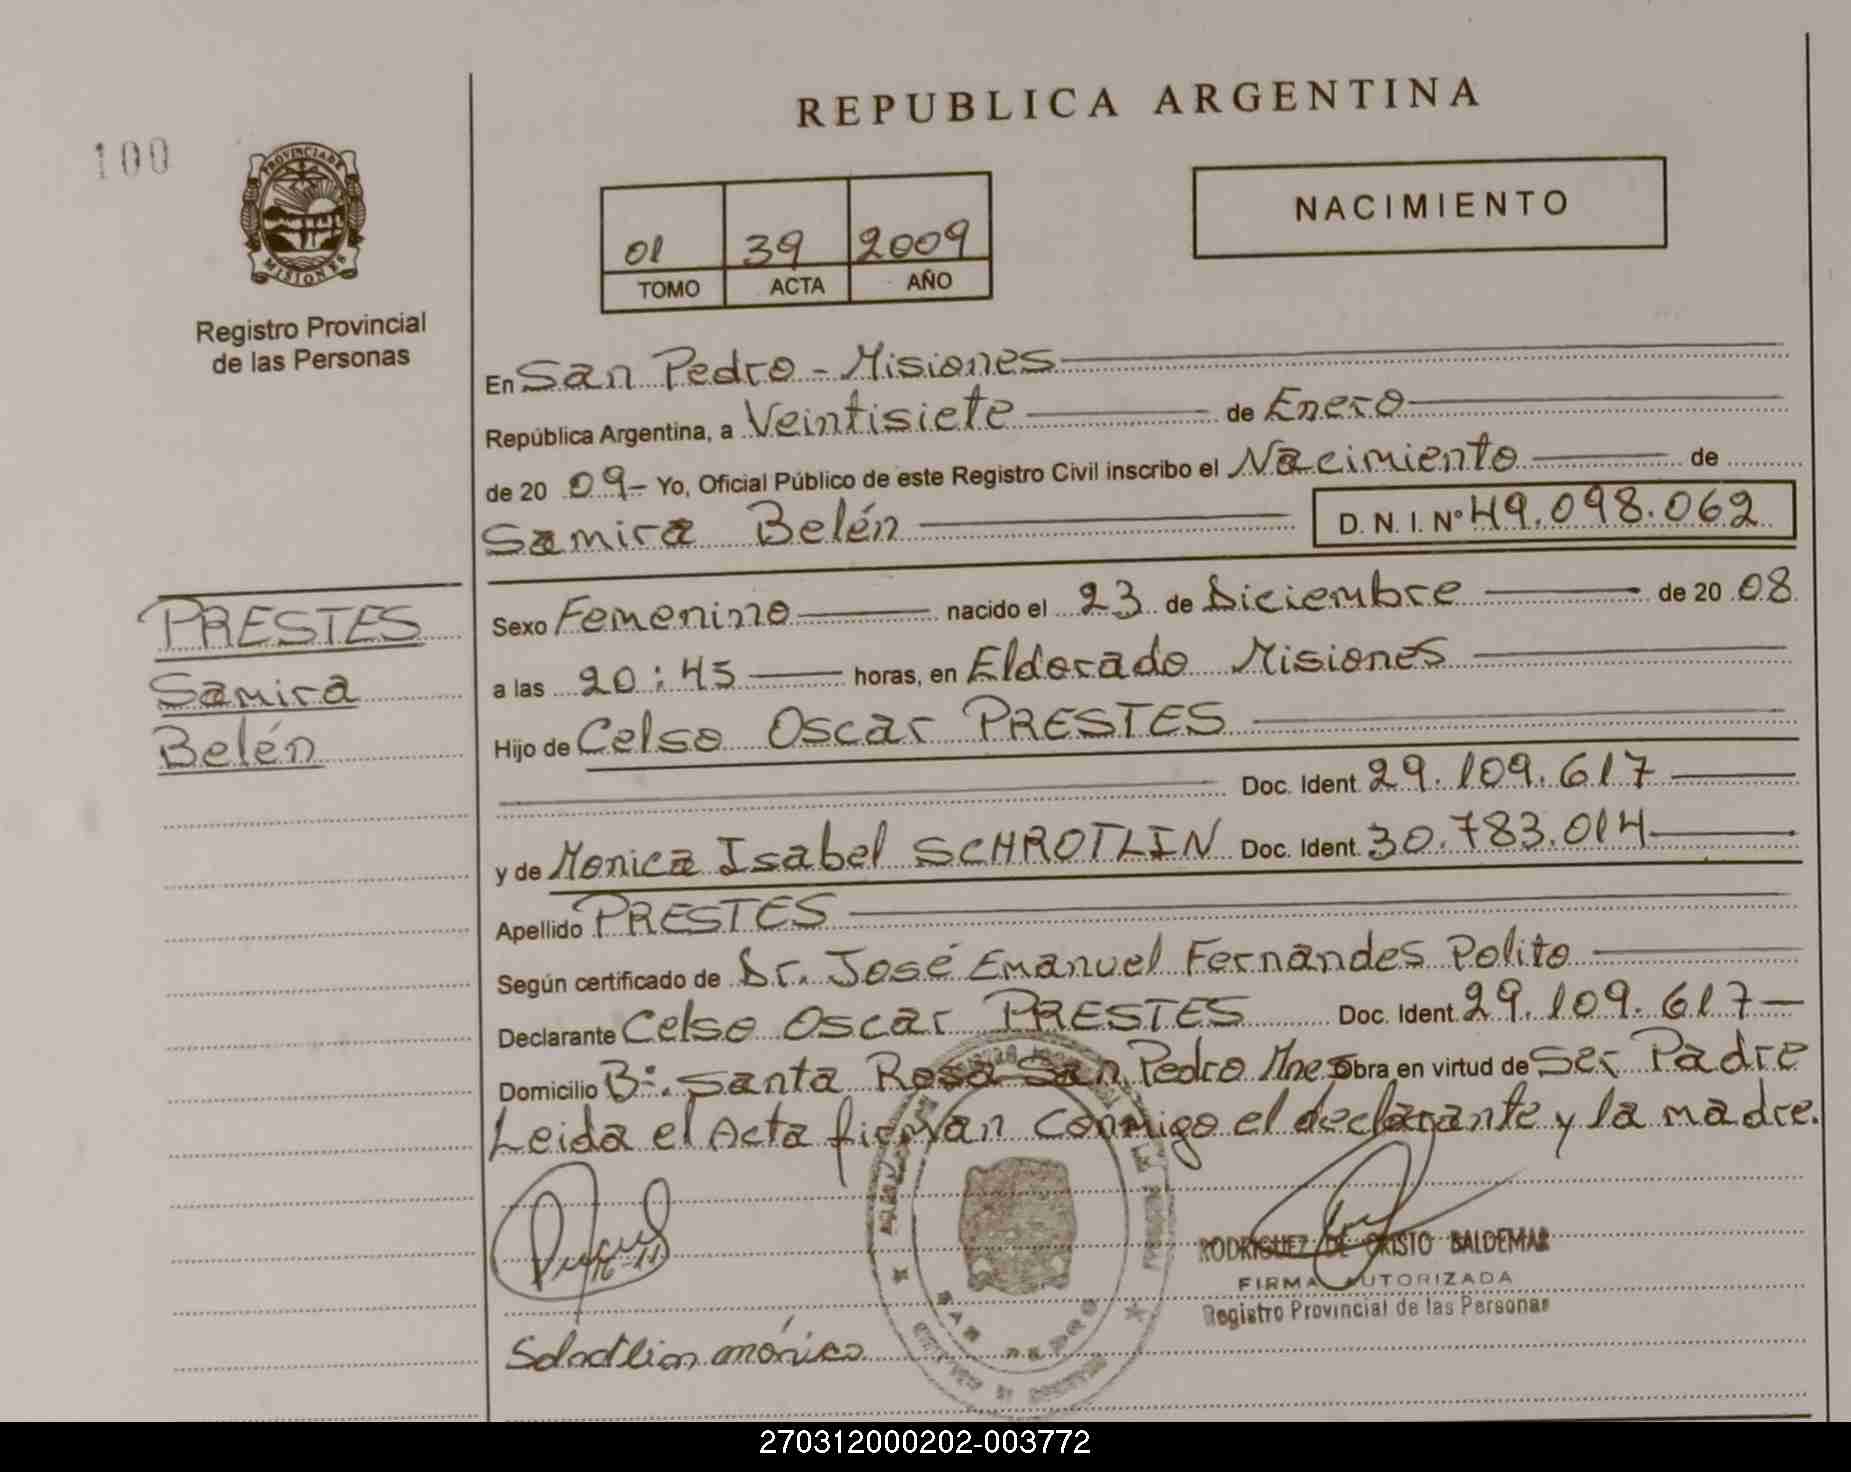 REPUBLICA ARGENTINA
100
PROVINCIA DE
MISIONES
Registro Provincial
de las Personas
01 39 2009
TOMO ACTA AÑO
NACIMIENTO
En San Pedro - Misiones
República Argentina, a Veintisiete de Enero
de 20 09- Yo, Oficial Público de este Registro Civil inscribo el Nacimiento de
Samira Belén D. N. I. Nº 49.098.062
PRESTES
Samira
Belén
Sexo Femenino nacido el 23 de Diciembre de 20 08
a las 20:45 horas, en Eldorado Misiones
Hijo de Celso Oscar PRESTES
Doc. Ident. 29.109.617
y de Monica Isabel SCHROTLIN Doc. Ident. 30.783.014
Apellido PRESTES
Según certificado de Dr. José Emanuel Fernandes Polito
Declarante Celso Oscar PRESTES Doc. Ident. 29.109.617
Domicilio Bº. Santa Rosa San Pedro Mnes Obra en virtud de Ser Padre
Leida el Acta firman conmigo el declarante y la madre.
RODRIGUEZ DE CRISTO BALDEMAR
FIRMA AUTORIZADA
Registro Provincial de las Personas
SAN PEDRO
mónica
270312000202-003772